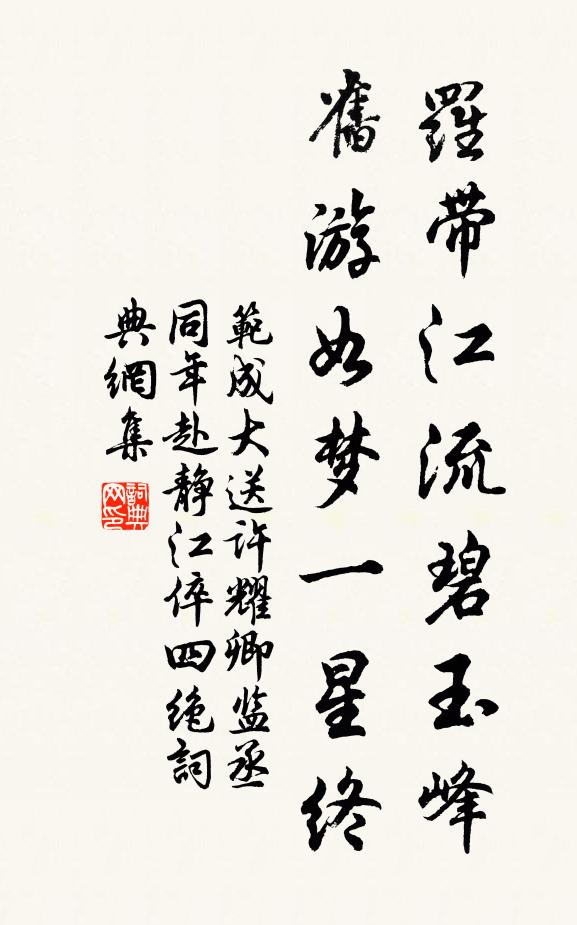 羅帶江流碧玉峰
舊游如梦一星終
範成大送許耀卿监丞
同年赴靜江倅四绝詞
典網集
詞典网印